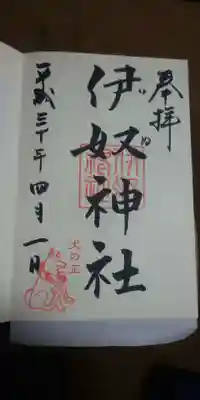 奉拝
伊奴神社
平成三十年四月一日
犬の王